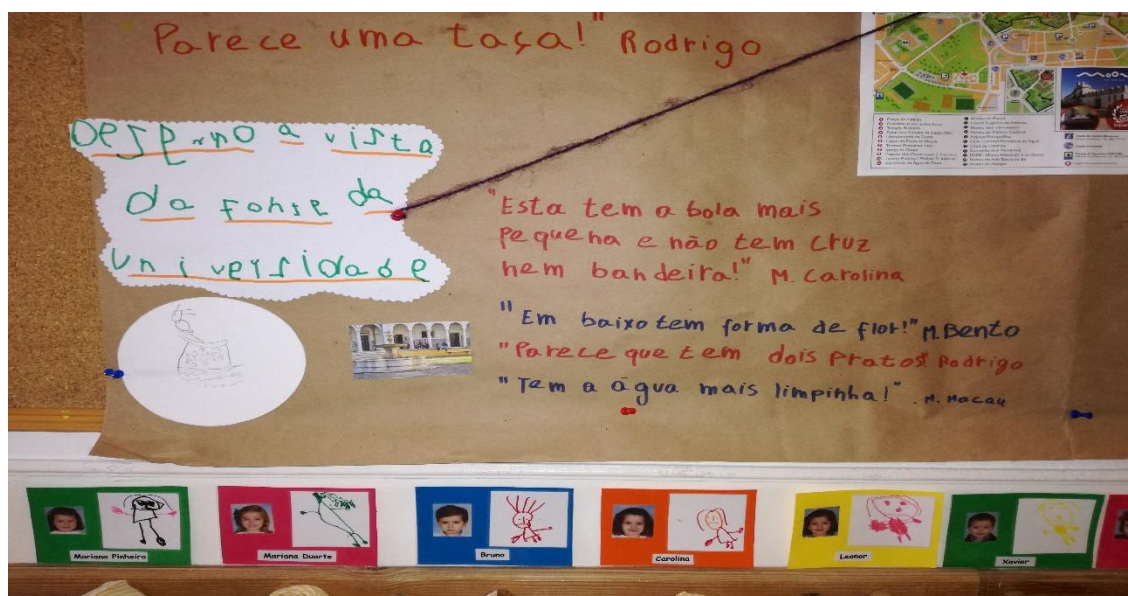 "Parece uma taça!" Rodrigo
Desenho à vista
da fonte da
universidade
"Esta tem a bola mais
pequena e não tem cruz
nem bandeira!" M. Carolina
"Em baixo tem forma de flor!" M. Bento
"Parece que tem dois pratos" Rodrigo
"Tem a água mais limpinha!". M. Macau
Mariana Pinheiro
Mariana Duarte
Bruno
Carolina
Leonor
Xavier